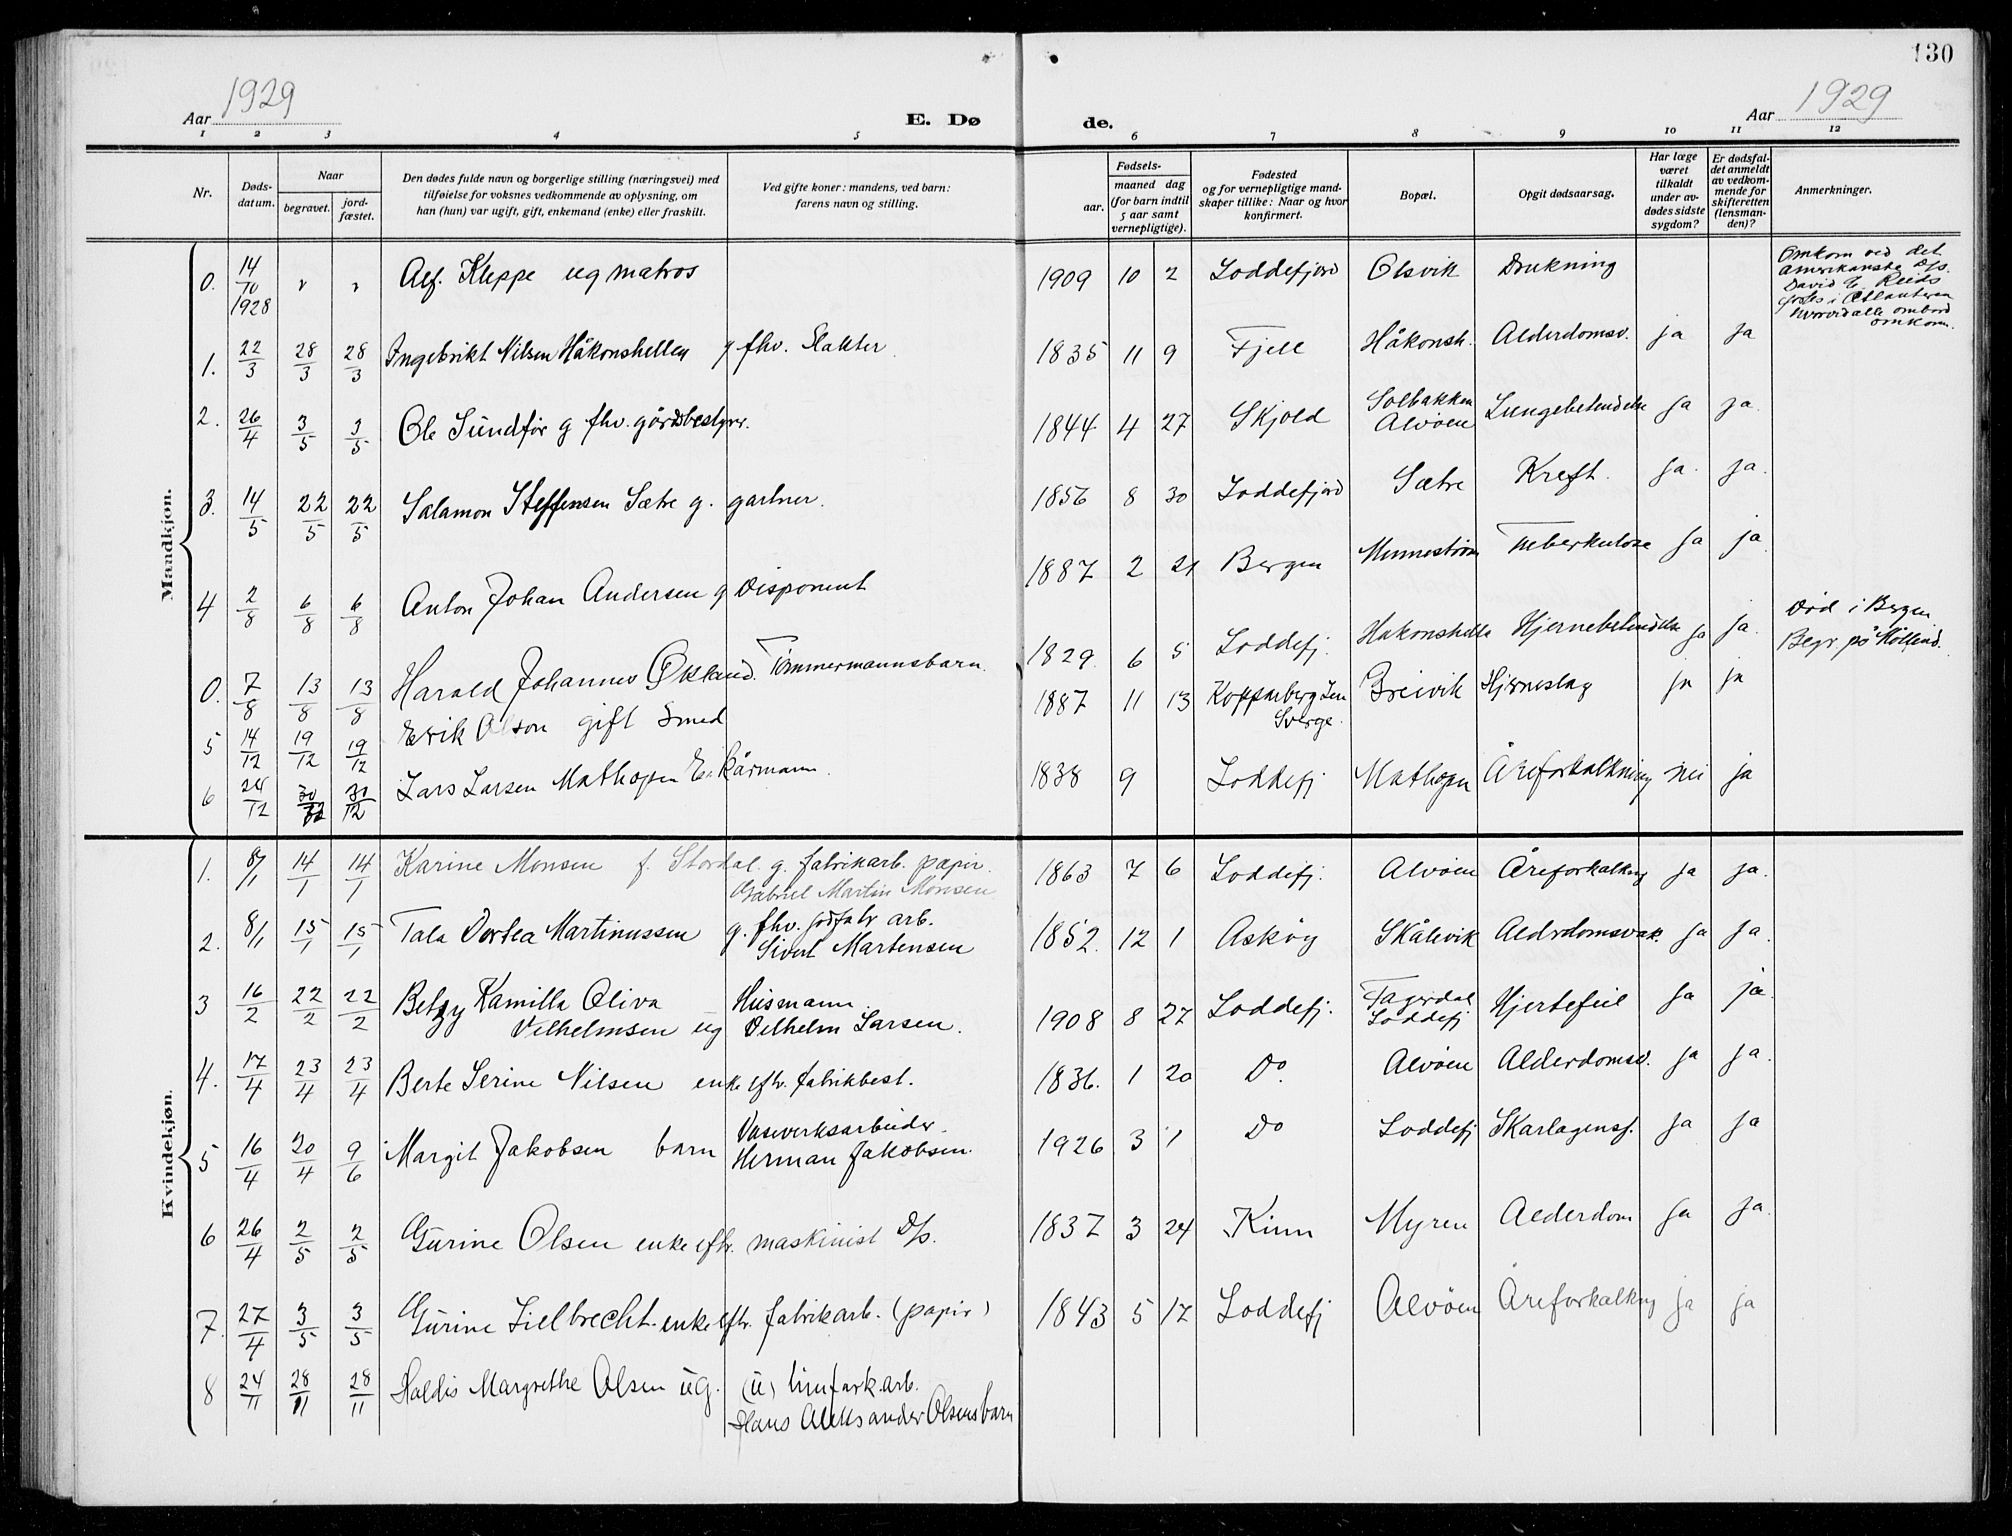 130
Aar 1929
E. Dø
de.
Aar 1929
1 2 3 4 5 6 7 8 9 10 11 12
Nr.
Døds-
datum.
Naar
begravet.
jord-
fæstet.
Den dødes fulde navn og borgerlige stilling (næringsvei) med
tilføielse for voksnes vedkommende av oplysning, om
han (hun) var ugift, gift, enkemand (enke) eller fraskilt.
Ved gifte koner: mandens, ved barn:
farens navn og stilling.
Fødsels-
aar.
maaned dag
(for barn indtil
5 aar samt
vernepligtige).
Fødested
og for vernepligtige mand-
skaper tillike: Naar og hvor
konfirmert.
Bopæl.
Opgit dødsaarsag.
Har læge
været
tilkaldt
under av-
dødes sidste
sygdom?
Er dødsfal-
det anmeldt
av vedkom-
mende for
skifteretten
(lensman-
den)?
Anmerkninger.
Mandkjøn.
0. 14/10 1928 " " Alf. Kleppe ug matros 1909 10 2 Loddefjord Olsvik Drukning
Omkom ved det
amerikanske D/s.
David C. Reids
forlis i Atlanteren
hvorvid alle ombord
omkom.
1. 22/3 28/3 28/3 Ingebrikt Nilsen Håkonshellen g fhv. Slakter 1835 11 9 Fjell Håkonsh. Alderdomsv. ja ja
2. 26/4 3/5 3/5 Ole Sundför g fhv. gårdsbestyrer. 1844 4 27 Skjold Solbakken Alvöen Lungebetendelse ja ja.
3. 14/5 22/5 22/5 Salamon Steffensen Sætre g. gartner. 1856 8 30 Loddefjord Sætre Kreft. ja. ja.
4 2/8 6/8 6/8 Anton Johan Andersen g Disponent 1887 2 21 Bergen Tuberkulose ja ja
0. 7/8 13/8 13/8 Harald Johannes Økland. Tömmermannsbarn. 1829. 6 5 Loddefj. Hakonshella Hjernebetendelse ja ja.
Död i Bergen
Begr. på Möllend.
5 14/12 19/12 19/12 Erik Olson gift Smed 1887 11 13 Kopparberg Len Sverge. Breivik Hjerneslag ja ja
6 24/12 30/12 30/12 Lars Larsen Mathopen E. Kårmann. 1838 9 Loddefj Mathopen Åreforkalkning nei ja
Kvindekjøn.
1. 8/1 14/1 14/1 Karine Monsen f. Stordal. g. fabrikarb. papir. 1863 7 6 Loddefj. Alvöen Åreforkalkng ja ja.
Gabriel Martin Monsen
2. 8/1 15/1 15/1 Tala Dortea Martinussen g. fhv. jodfabr arb. 1852. 12 1 Asköy Skålevik Alderdomsvak. ja ja.
Sivert Martensen
3 16/2 22/2 22/2 Betzy Kamilla Oliva Husmann 1908 8 27 Loddefj. Fagerdal Loddefj Hjertefeil ja ja
Vilhelmsen ug Vilhelm Larsen.
4. 17/4 23/4 23/4 Berte Serine Nilsen enke eftr. fabrikbest. 1836. 1 20 Do. Alvöen Alderdomsv. ja ja.
5 16/4 20/4 9/6 Margit Jakobsen barn Vaseverksarbeider 1926 3 1 Do Loddefj Skarlagensf. ja ja
Herman Jakobsen.
6 26/4 2/5 2/5 Gurine Olsen enke eftr. maskinist D/s. 1837 3 24 Kinn Myren Alderdom ja ja.
7. 27/4 3/5 3/5 Gurine Lielbrecht. enke eftr. fabrikarb. (papir) 1843 5 17 Loddefj Alvöen Åreforkalkng ja ja
8 24/11 28/11 28/11 Haldis Margrethe Olsen ug. (u)
Hans Aleksander Olsens barn